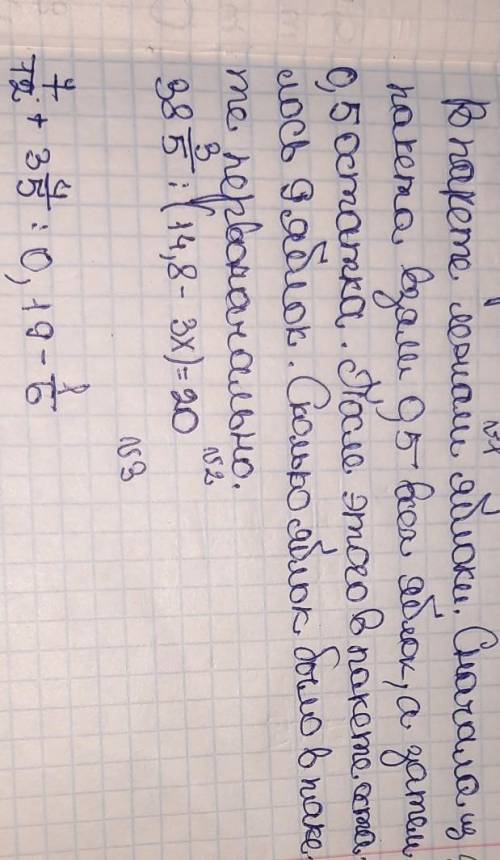 №1
В пакете лежали яблоки. Сначала из
пакета взяли 0,5 всех яблок, а затем
0,5 остатка. После этого в пакете оста-
лось 9 яблок. Сколько яблок было в паке-
те первоначально.
№2
38 3/5 : (14,8 - 3x) = 20
№3
4/12 + 3 4/5 : 0,19 - 1/6